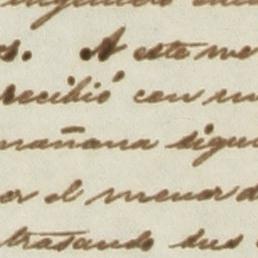 s. A este me
recibió con m
mañana sigui
er el menor d
trasando sus